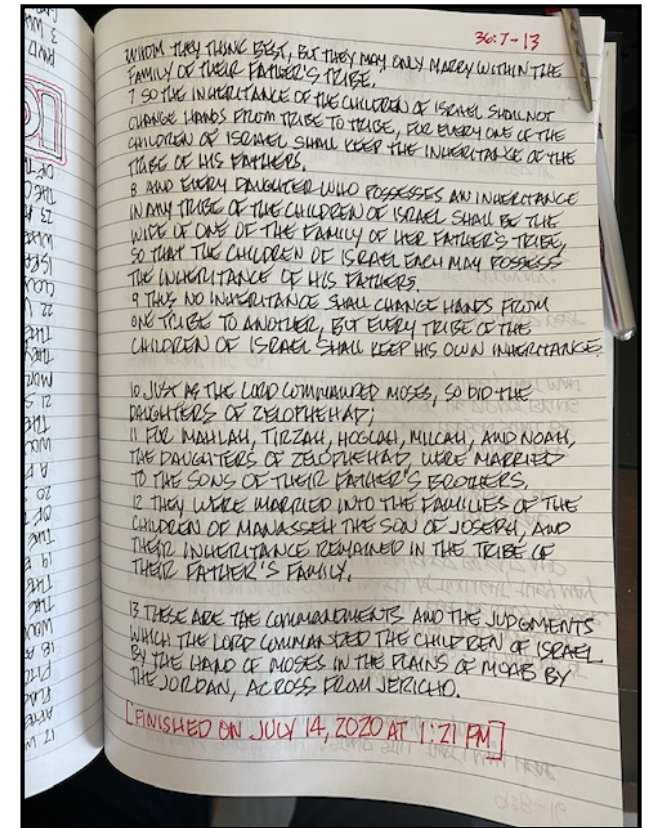 36:7-13
WHOM THEY THINK BEST, BUT THEY MAY ONLY MARRY WITHIN THE
FAMILY OF THEIR FATHER'S TRIBE.'
7 SO THE INHERITANCE OF THE CHILDREN OF ISRAEL SHALL NOT
CHANGE HANDS FROM TRIBE TO TRIBE, FOR EVERY ONE OF THE
CHILDREN OF ISRAEL SHALL KEEP THE INHERITANCE OF THE
TRIBE OF HIS FATHERS.
8 AND EVERY DAUGHTER WHO POSSESSES AN INHERITANCE
IN ANY TRIBE OF THE CHILDREN OF ISRAEL SHALL BE THE
WIFE OF ONE OF THE FAMILY OF HER FATHER'S TRIBE,
SO THAT THE CHILDREN OF ISRAEL EACH MAY POSSESS
THE INHERITANCE OF HIS FATHERS.
9 THUS NO INHERITANCE SHALL CHANGE HANDS FROM
ONE TRIBE TO ANOTHER, BUT EVERY TRIBE OF THE
CHILDREN OF ISRAEL SHALL KEEP HIS OWN INHERITANCE.
10 JUST AS THE LORD COMMANDED MOSES, SO DID THE
DAUGHTERS OF ZELOPHEHAD;
11 FOR MAHLAH, TIRZAH, HOGLAH, MILCAH, AND NOAH,
THE DAUGHTERS OF ZELOPHEHAD, WERE MARRIED
TO THE SONS OF THEIR FATHER'S BROTHERS.
12 THEY WERE MARRIED INTO THE FAMILIES OF THE
CHILDREN OF MANASSEH THE SON OF JOSEPH, AND
THEIR INHERITANCE REMAINED IN THE TRIBE OF
THEIR FATHER'S FAMILY.
13 THESE ARE THE COMMANDMENTS AND THE JUDGMENTS
WHICH THE LORD COMMANDED THE CHILDREN OF ISRAEL
BY THE HAND OF MOSES IN THE PLAINS OF MOAB BY
THE JORDAN, ACROSS FROM JERICHO.
[FINISHED ON JULY 14, 2020 AT 1:21 PM]